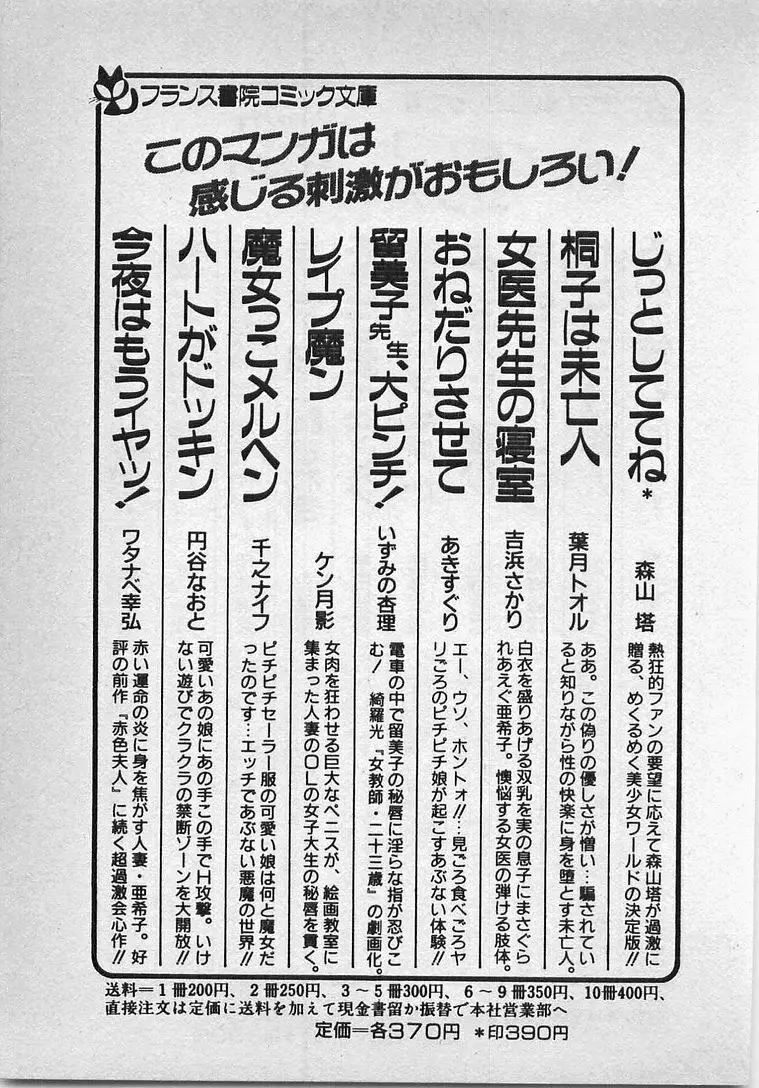 フランス書院コミック文庫
このマンガは
感じる刺激がおもしろい！
じっとしててね*
森山 塔
熱狂的ファンの要望に応えて森山塔が過激に
贈る、めくるめく美少女ワールドの決定版!!
桐子は未亡人
葉月トオル
ああ。この偽りの優しさが憎い…騙されてい
ると知りながら性の快楽に身を堕とす未亡人。
女医先生の寝室
吉浜さかり
白衣を盛りあげる双乳を実の息子にまさぐら
れあえぐ亜希子。懊悩する女医の弾ける肢体。
おねだりさせて
あきすぐり
エー、ウソ、ホントォ!!…見ごろ食べごろヤ
リごろのピチピチ娘が起こすあぶない体験!!
留美子先生、大ピンチ！
いずみの杏理
電車の中で留美子の秘唇に淫らな指が忍びこ
む！ 綺羅光『女教師・二十三歳』の劇画化。
レイプ魔ン
ケン月影
女肉を狂わせる巨大なペニスが、絵画教室に
集まった人妻のOLの女子大生の秘唇を貫く。
魔女っこメルヘン
千之ナイフ
ピチピチセーラー服の可愛い娘は何と魔女だ
ったのです…エッチであぶない悪魔の世界!!
ハートがドッキン
円谷なおと
可愛いあの娘にあの手この手でH攻撃。いけ
ない遊びでクラクラの禁断ゾーンを大開放!!
今夜はもうイヤッ！
ワタナベ幸弘
赤い運命の炎に身を焦がす人妻・亜希子。好
評の前作『赤色夫人』に続く超過激会心作!!
送料＝1冊200円、2冊250円、3～5冊300円、6～9冊350円、10冊400円、
直接注文は定価に送料を加えて現金書留か振替で本社営業部へ
定価＝各370円 *印390円